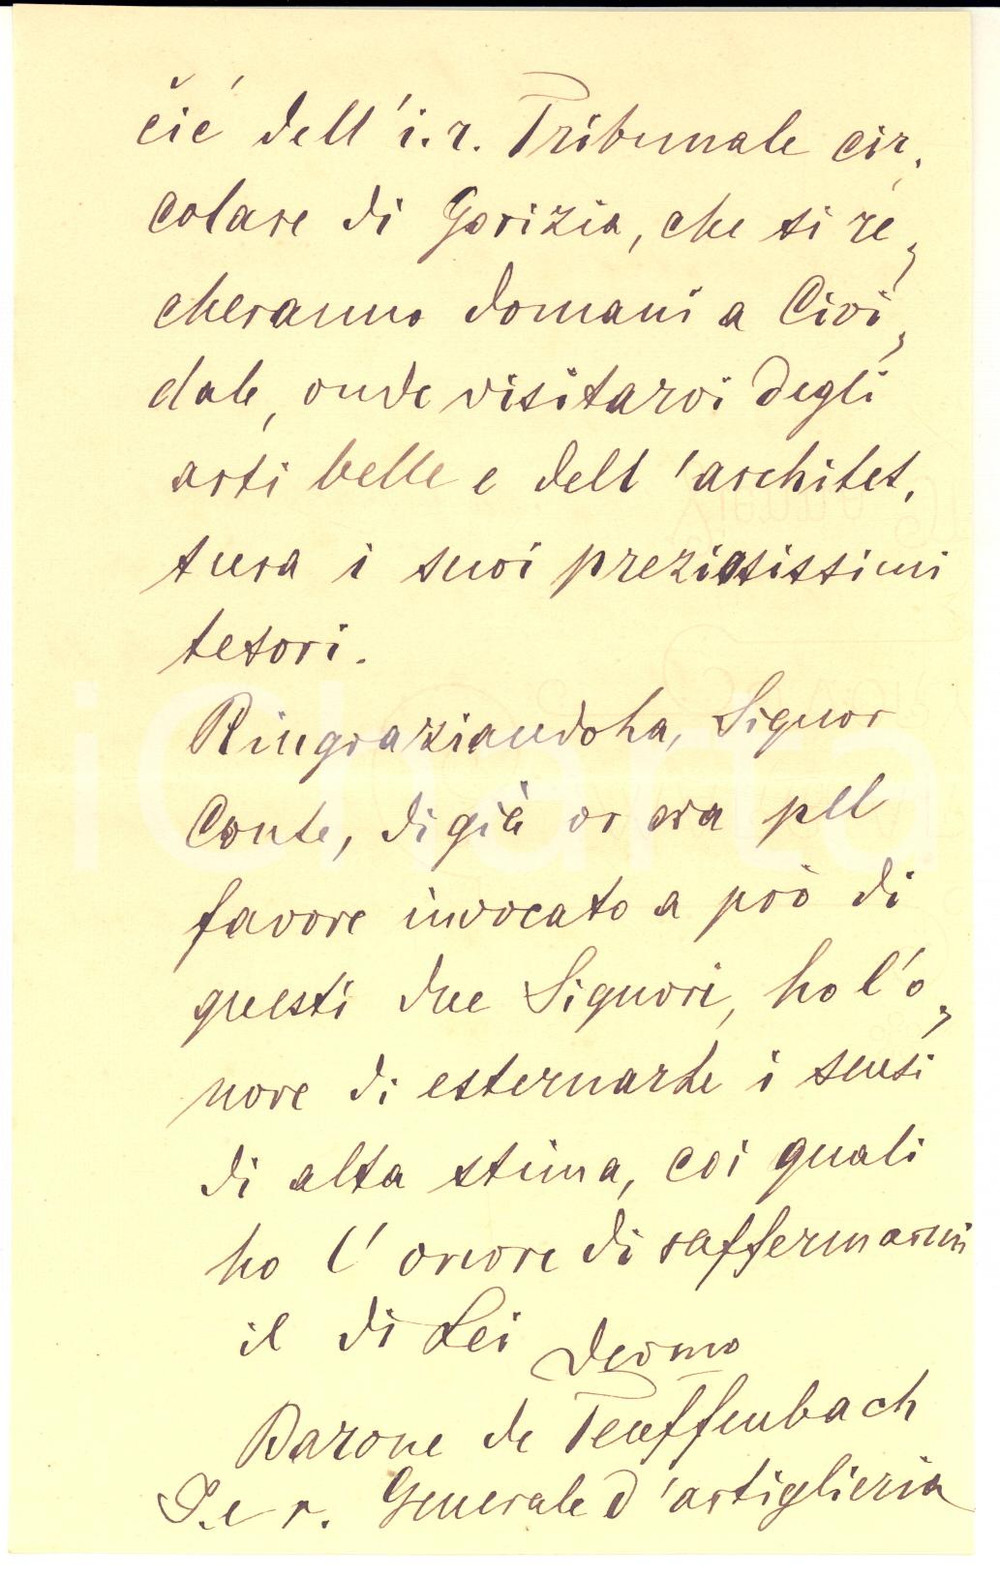 čić dell'i.r. Tribunale cir,
colare di Gorizia, che si re,
cheranno domani a Civi,
dale, onde visitarvi degli
arti belle e dell'architet,
tura i suoi preziosissimi
tesori.
Ringraziandola, Signor
Conte, di già or ora pel
favore invocato a prò di
questi due Signori, ho l'o,
nore di esternarle i sensi
di alta stima, coi quali
ho l'onore di raffermarmi
il di Lei Devmo
Barone de Teuffenbach
I. e r. Generale d'artiglieria
iCharta